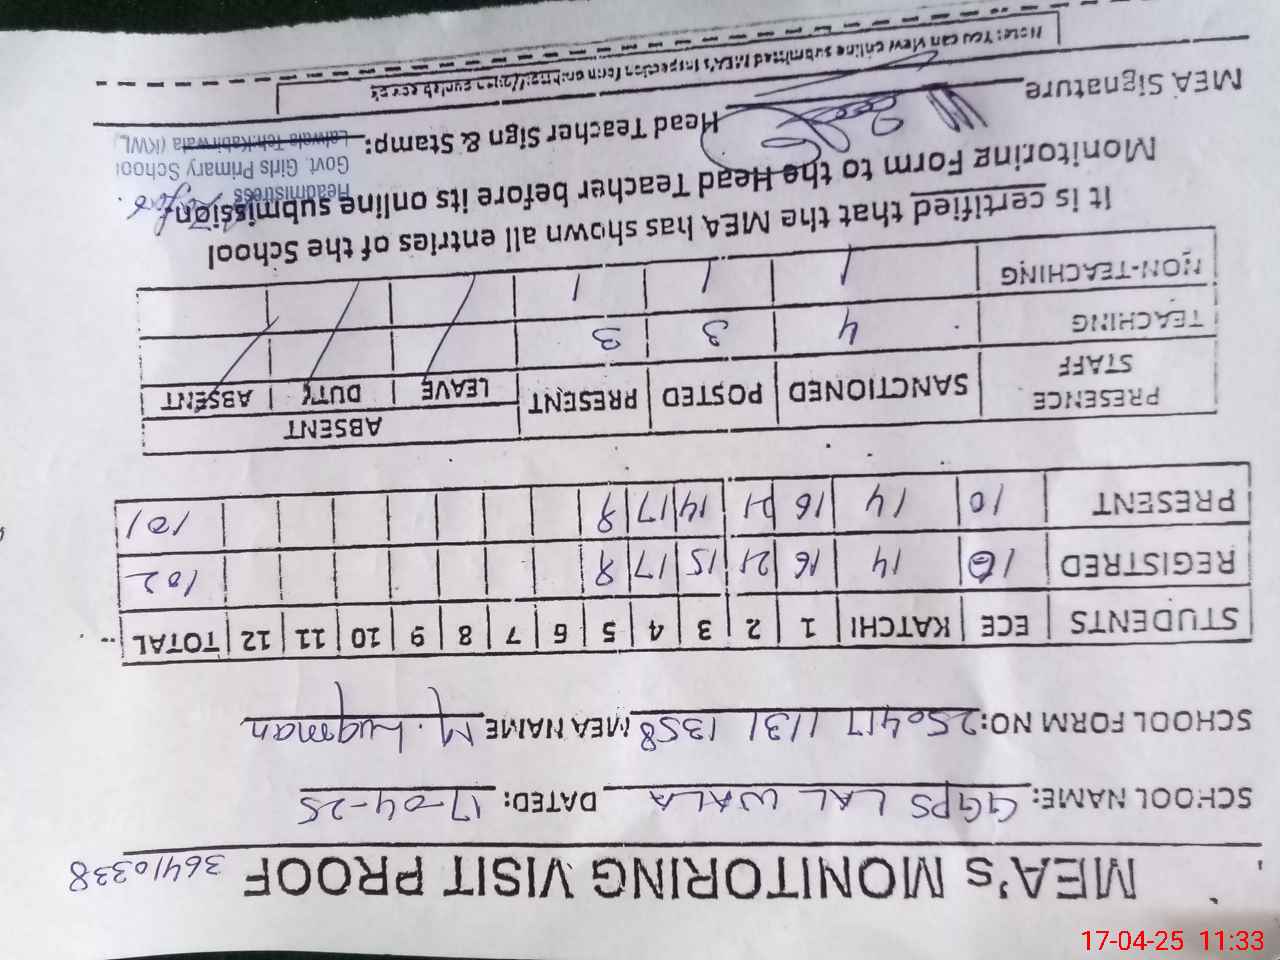 MEA's MONITORING VISIT PROOF 36410338
SCHOOL NAME: GGPS LAL WALA DATED: 17-04-25
SCHOOL FORM NO: 250417 1131 1358 MEA NAME M. Luqman
STUDENTS ECE KATCHI 1 2 3 4 5 6 7 8 9 10 11 12 TOTAL
REGISTRED 10 14 16 21 15 17 9 102
PRESENT 10 14 16 21 14 17 9 101
PRESENCE STAFF SANCTIONED POSTED PRESENT ABSENT
LEAVE DUTY ABSENT
TEACHING 4 3 3
NON-TEACHING 1 1 1
It is certified that the MEA has shown all entries of the School
Monitoring Form to the Head Teacher before its online submission.
Headmistress
Govt. Girls Primary School
Lalwala Teh:Kabirwala (KWL)
MEA Signature Head Teacher Sign & Stamp:
Note: You can view online submitted MEA's inspection form on
17-04-25 11:33